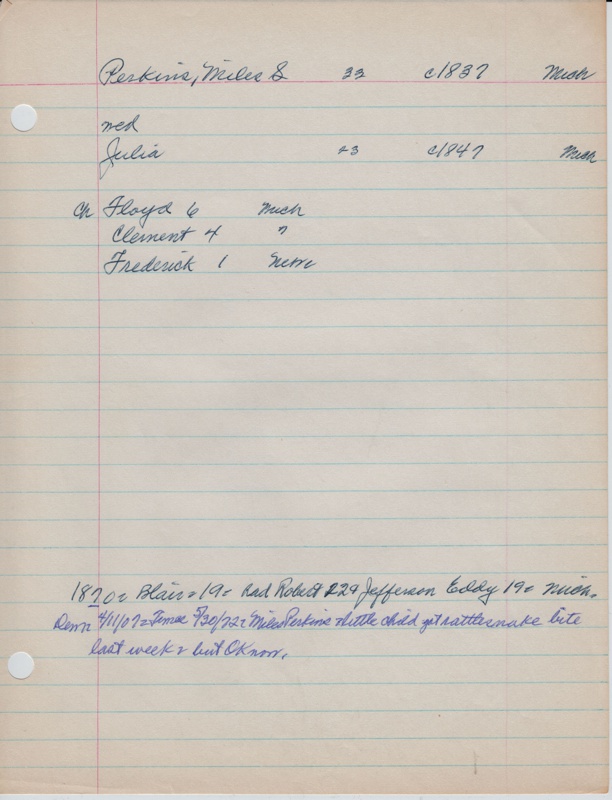 Perkins, Miles S 33 c1837 Mich
med
Julia 23 c1847 Mich
Ch Floyd 6 Mich
Clement 4 "
Frederick 1 Nebr
1870= Blair=19= had Robert 22& Jefferson Eddy 19= Mich.
Dem= 4/11/07= Times 5/30/72= Miles Perkins little child got rattlesnake bite
last week= but OK now.